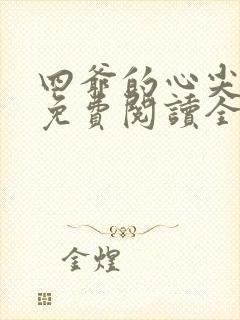 四爺的心尖
免費閱讀全
金煌